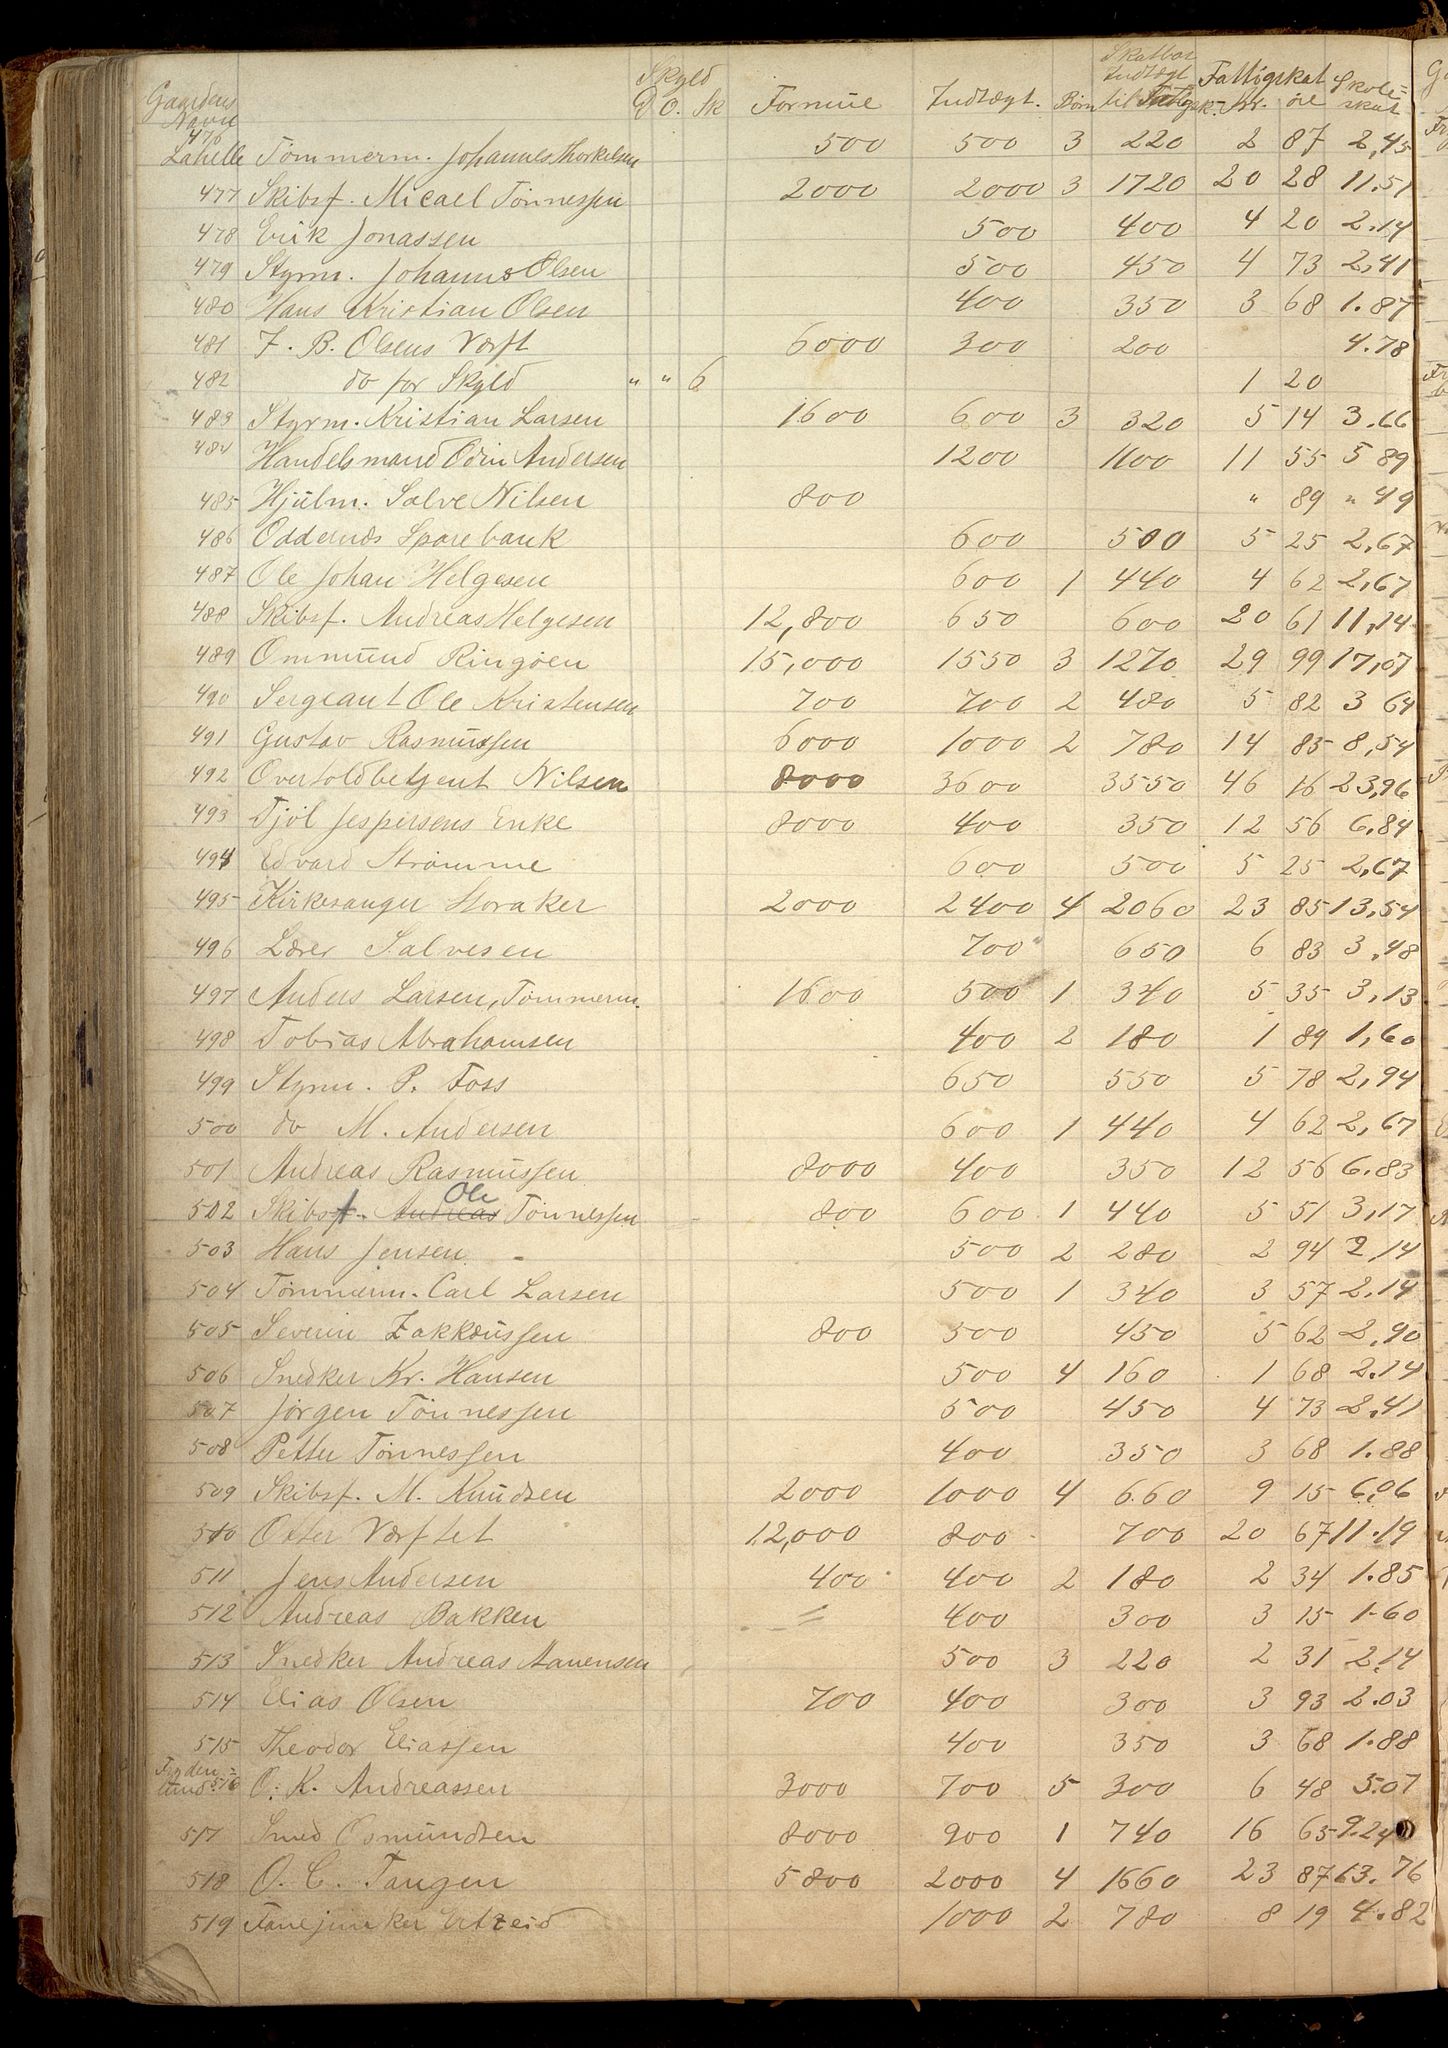 Gaardens Navn Skyld D. O. Sk Formue Indtægt. Börn Skatbar Indtægt til Fatigsk. Fattigskat Kr. öre Skoleskat
476 Lahelle Tömmerm. Johannes Thorkelsen 500 500 3 220 2 87 2,45
477 Skibsf. Micael Tönnessen 2000 2000 3 1720 20 28 11.51
478 Erik Jonassen 500 400 4 20 2.14
479 Styrm. Johanns Olsen 500 450 4 73 2,41
480 Hans Kristian Olsen 400 350 3 68 1.87
481 F. B. Olsens Værft 6000 300 200 4.78
482 do for Skyld " " 6 1 20
483 Styrm. Kristian Larsen 1600 600 3 320 5 14 3.66
484 Handelsmand Odin Andersen 1200 1100 11 55 5 89
485 Hjulm. Salve Nilsen 800 " 89 " 49
486 Oddernes Sparebank 600 500 5 25 2,67
487 Ole Johan Helgesen 600 1 440 4 62 2,67
488 Skibsf. Andreas Helgesen 12,800 650 600 20 61 11,14
489 Ommund Ringöen 15,000 1550 3 1270 29 99 17,07
490 Sergeant Ole Kristensen 700 700 2 480 5 82 3 64
491 Gustav Rasmussen 6000 1000 2 780 14 85 8,54
492 Overtoldbetjent Nilsen 8000 3600 3550 46 16 23,96
493 Tjöl Jespersens Enke 8000 400 350 12 56 6,84
494 Edvard Strömme 600 500 5 25 2,67
495 Kirkesanger Horaker 2000 2400 4 2060 23 85 13,54
496 Lærer Salvesen 700 650 6 83 3,48
497 Anders Larsen, Tömmerm. 1600 500 1 340 5 35 3,13
498 Tobias Abrahamsen 400 2 180 1 89 1,60
499 Styrm. P. Foss 650 550 5 78 2,94
500 do M. Andersen 600 1 440 4 62 2,67
501 Andreas Rasmussen 8000 400 350 12 56 6.83
502 Skibsf. Andreas Ole Tönnessen 800 600 1 440 5 51 3,17
503 Hans Jensen 500 2 280 2 94 2,14
504 Tömmerm. Carl Larsen 500 1 340 3 57 2.14
505 Severin Zakkæussen 800 500 450 5 62 2,90
506 Snedker Kr. Hansen 500 4 160 1 68 2.14
507 Jörgen Tönnessen 500 450 4 73 2,41
508 Petter Tönnessen 400 350 3 68 1.88
509 Skibsf. M. Knudsen 2000 1000 4 660 9 15 6,06
510 Oster Værftet 12,000 800 700 20 67 11.19
511 Jens Andersen 400 400 2 180 2 34 1.85
512 Andreas Bakken 400 300 3 15 1-60
513 Snedker Andreas Aanensen 500 3 220 2 31 2.14
514 Elias Olsen 700 400 300 3 93 2.03
515 Theodor Eliassen 400 350 3 68 1.88
Frydenlund 516 O. K. Andreassen 3000 700 5 300 6 48 5.07
517 Smed Osmundsen 8000 900 1 740 16 65 9.24
518 O. C. Tangen 5800 2000 4 1660 23 87 13.76
519 Fanejunker Ertzeid 1000 2 780 8 19 4.82